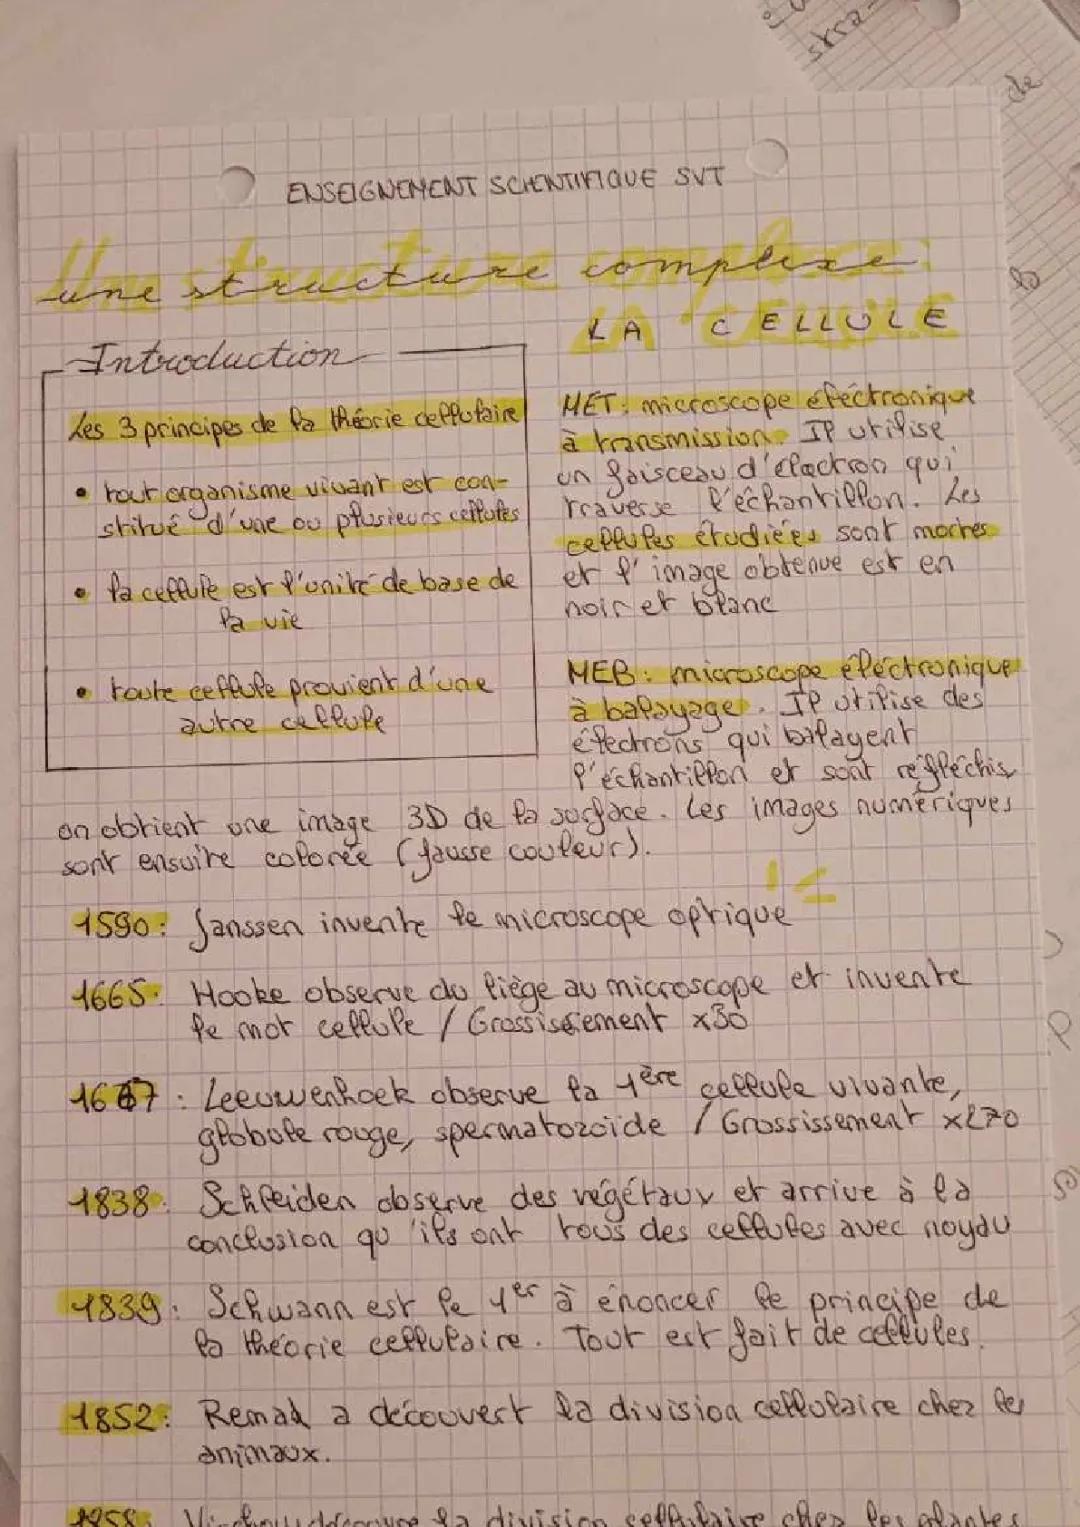 ENSEIGNEMENT SCIENTIFIQUE SVT
Une structure complexe:
LA CELLULE
Introduction
Les 3 principes de la théorie cellulaire
• tout organisme vivant est con-
stitué d'une ou plusieurs cellules
• la cellule est l'unité de base de
la vie
• toute cellule provient d'une
autre cellule
MET: microscope éléctronique
à transmission. Il utilise
un faisceau d'électron qui
traverse l'échantillon. Les
cellules étudiées sont mortes
et l'image obtenue est en
noir et blanc
MEB: microscope éléctronique
à balayage. Il utilise des
électrons qui balayent
l'échantillon et sont réfléchis
on obtient une image 3D de la surface. Les images numériques
sont ensuite colorée (fausse couleur).
1590: Janssen invente le microscope optique
1665: Hooke observe du liège au microscope et invente
le mot cellule / Grossissement x30
: Leeuwenhoek observe la 1ère cellule vivante,
globule rouge, spermatozoïde / Grossissement x270
1838: Schleiden observe des végétaux et arrive à la
conclusion qu'ils ont tous des cellules avec noyau
1839: Schwann est le 1er à énoncer le principe de
la théorie cellulaire. Tout est fait de cellules.
1852: Remak a découvert la division cellulaire chez les
animaux.
1858: Virchow découvre la division cellulaire chez les plantes
de